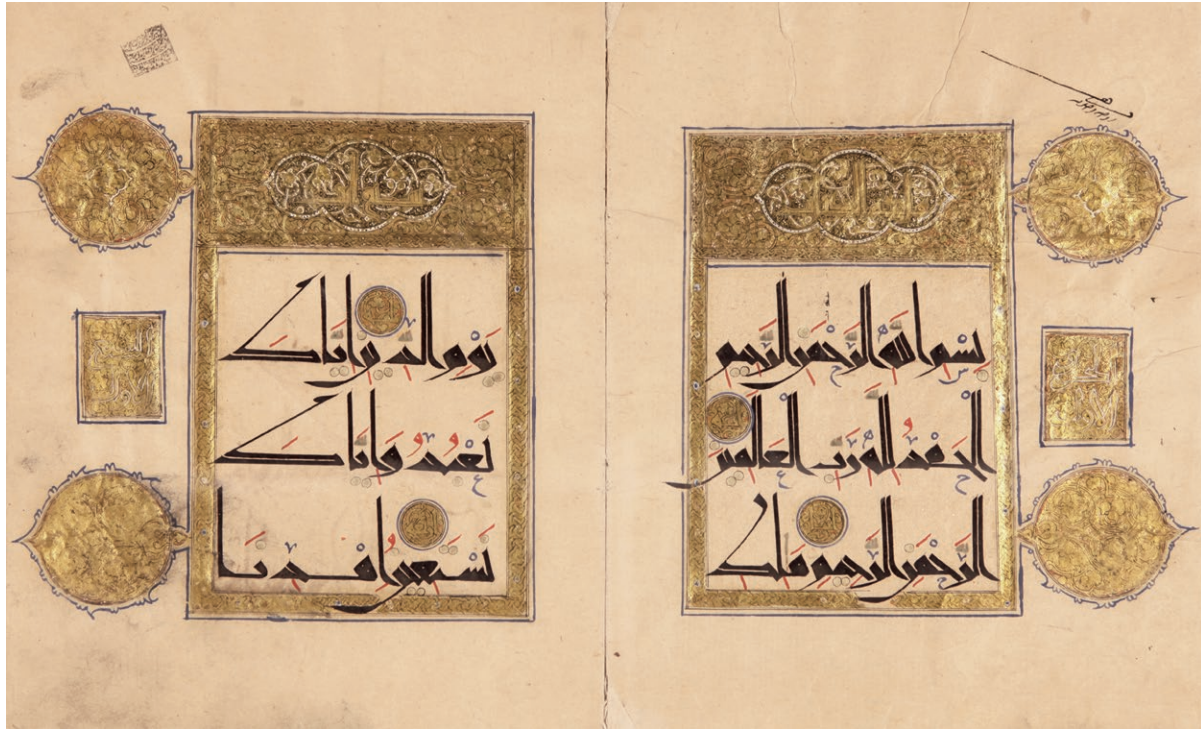 بسم الله الرحمن الرحيم
الحمد لله رب العالمين
الرحمن الرحيم ملك
يوم الدين اياك
نعبد واياك
نستعين اهدنا